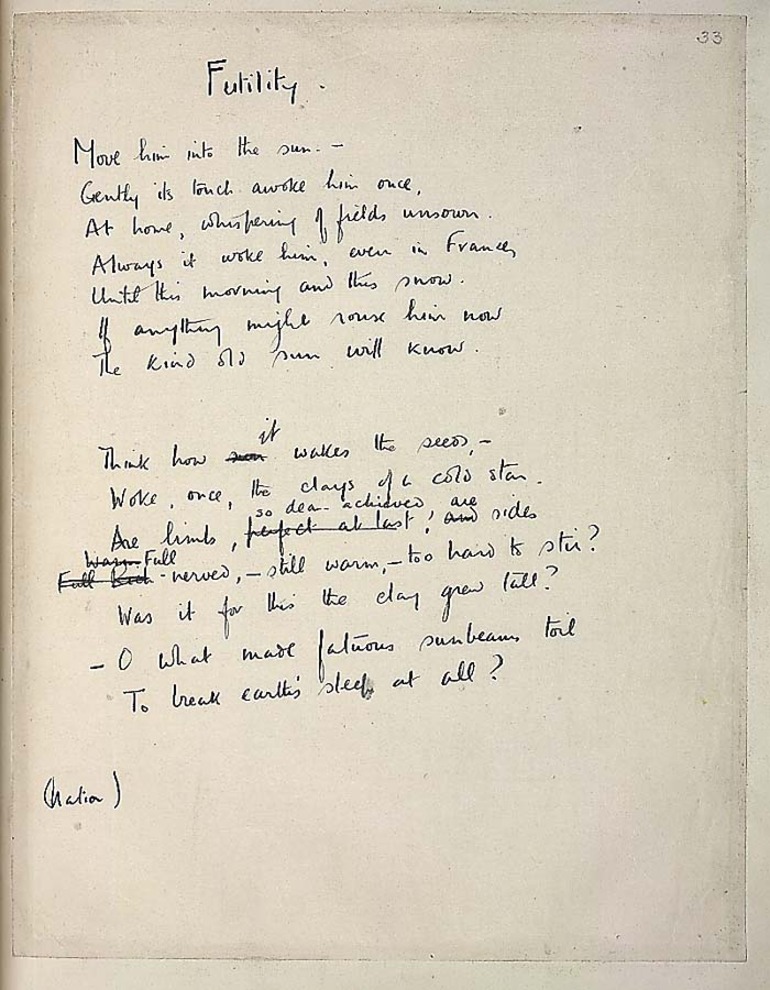 33
Futility.
Move him into the sun. —
Gently its touch awoke him once,
At home, whispering of fields unsown.
Always it woke him, even in France,
Until this morning and this snow.
If anything might rouse him now
The kind old sun will know.
it
Think how sun wakes the seeds, —
Woke, once, the clays of a cold star.
so dear-achieved, are
Are limbs, perfect at last, and sides
Warm Full
Full Rich-nerved, — still warm, — too hard to stir?
Was it for this the clay grew tall?
— O what made fatuous sunbeams toil
To break earth's sleep at all?
(Nation)